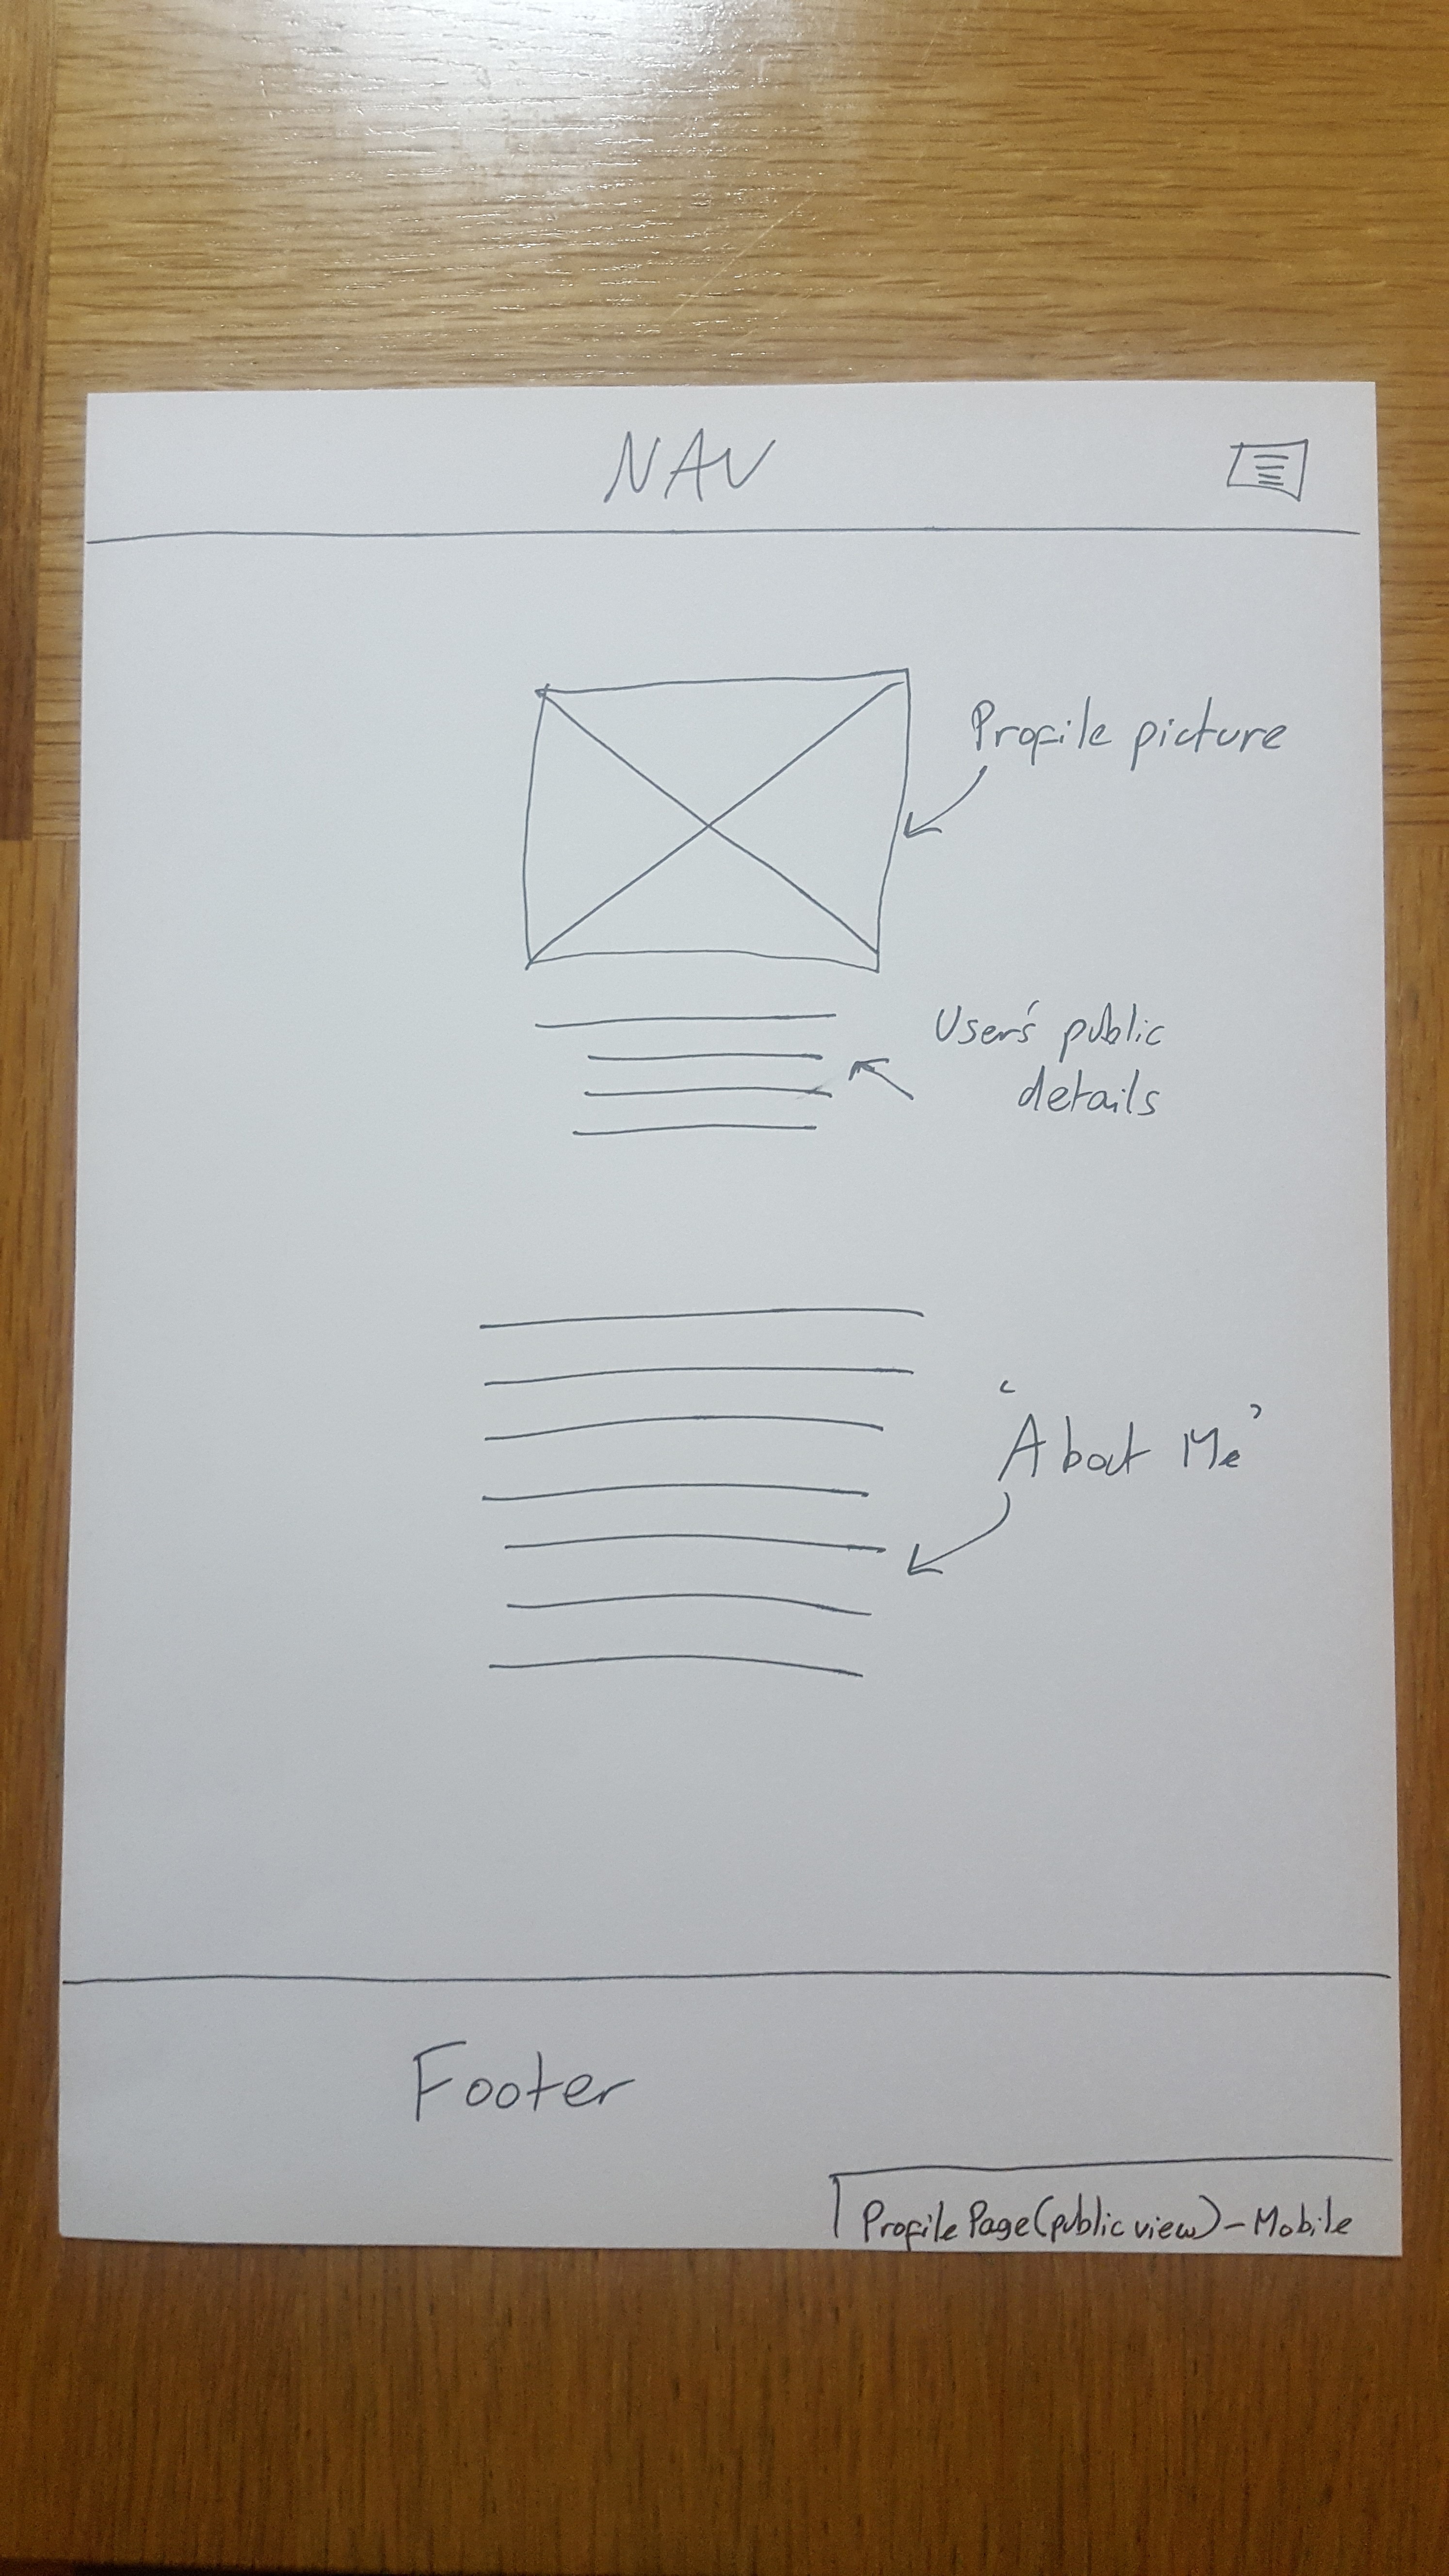 NAV
Profile picture
User's public
details
'About Me'
Footer
Profile Page (public view) - Mobile